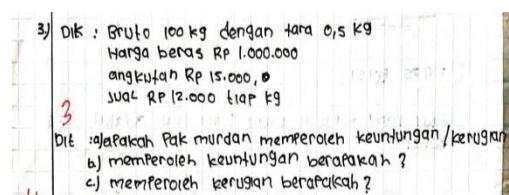 3) Dik : Bruto 100 kg dengan tara 0,5 kg
Harga beras Rp 1.000.000
angkutan Rp 15.000,0
Jual RP 12.000 tiap kg
3
Dit : a) apakah Pak murdan memperoleh keuntungan / kerugian
b) memperoleh keuntungan berapakah ?
c) memperoleh kerugian berapakah ?